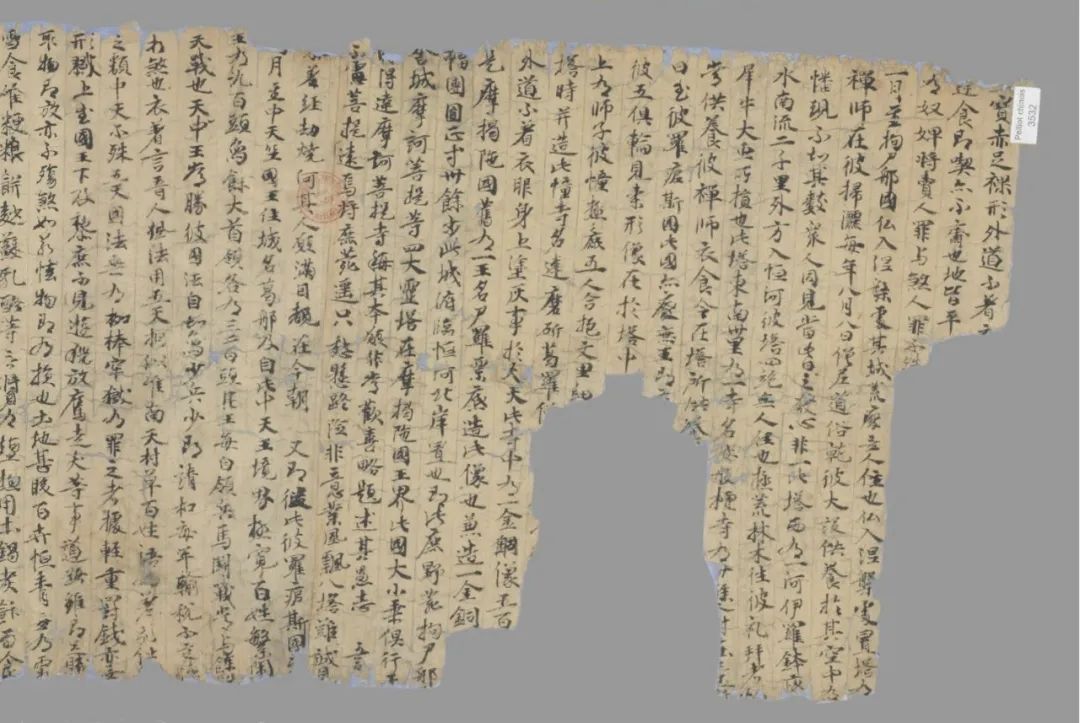 Pelliot chinois 3532
寶赤足裸形外道不著
逢食即喫亦不齋也地皆平
有奴婢將賣人罪与煞人罪
一月至拘尸那國仏入涅槃處其城荒廢無人住也仏入涅槃處置塔有
禪師在彼掃灑每年八月八日僧尼道俗就彼大設供養於其空中有
幡現不知其數衆人同見當此之日發心非一此塔西有一河伊羅鉢底
水南流二千里外方入恒河彼塔四絶無人住也極荒林木往彼礼拜者
犀牛大虫所損也此塔東南卅里有一寺名娑般檀寺有
常供養彼禪師衣食令在塔所供養
日至彼羅痆斯國此國亦廢無王即
彼五俱輪見素形像在於塔中
上有師子彼幢極麁五人合抱文里細
塔時并造此幢寺名達磨斫葛羅僧
外道不着衣服身上塗灰事於大天此寺中有一金銅像五百
是摩揭陁國舊有一王名尸羅票底造此像也兼造一金銅
輻團圓正等卅餘步此城俯臨恒河北岸置也即此鹿野苑拘尸那
舍城摩訶菩提等四大靈塔在摩揭陁國王界此國大小乘俱行
得達摩訶菩提寺稱其本願非常歡喜略題述其愚志
不慮菩提遠焉將鹿苑遙只愁懸路險非意業風飄八塔難誠見 五言
著經劫燒何其人願滿目覩在今朝 又即從此彼羅痆斯國
月至中天竺國王住城名葛那及自此中天王境界極寬百姓繁閙
王有九百頭象餘大首領各有三二百頭其王每自領兵馬鬪戰常与餘
天戰也天中王常勝彼國法自知象少兵少即請和每年輸稅不交
相煞也衣著言音人風法用五天相似唯南天村草百姓語有差別仕
之類中天不殊五天國法無有枷棒牢獄有罪之者據輕重罰錢亦無
形戮上至國王下及黎庶不見遊獵放鷹走犬等事道路雖即足賊
取物即放亦不殤煞如若恡物即有損也土地甚暖百卉恒青無有霜
雪食唯粳粮餅麨蘇乳酪等無醬有鹽惣用土鍋煮飯而食